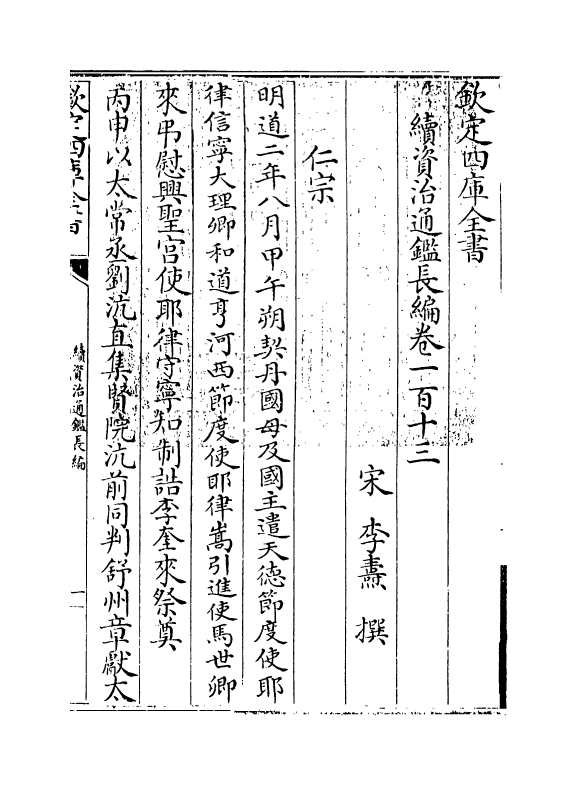 欽定四庫全書
續資治通鑑長編卷一百十三
宋　李燾　撰
仁宗
明道二年八月甲午朔契丹國母及國主遣天德節度使耶
律信寧大理卿和道亨河西節度使耶律嵩引進使馬世卿
來弔慰興聖宮使耶律守寧知制誥李奎來祭奠
丙申以太常丞劉沆直集賢院沆前同判舒州章獻太
欽定四庫全書
續資治通鑑長編
一